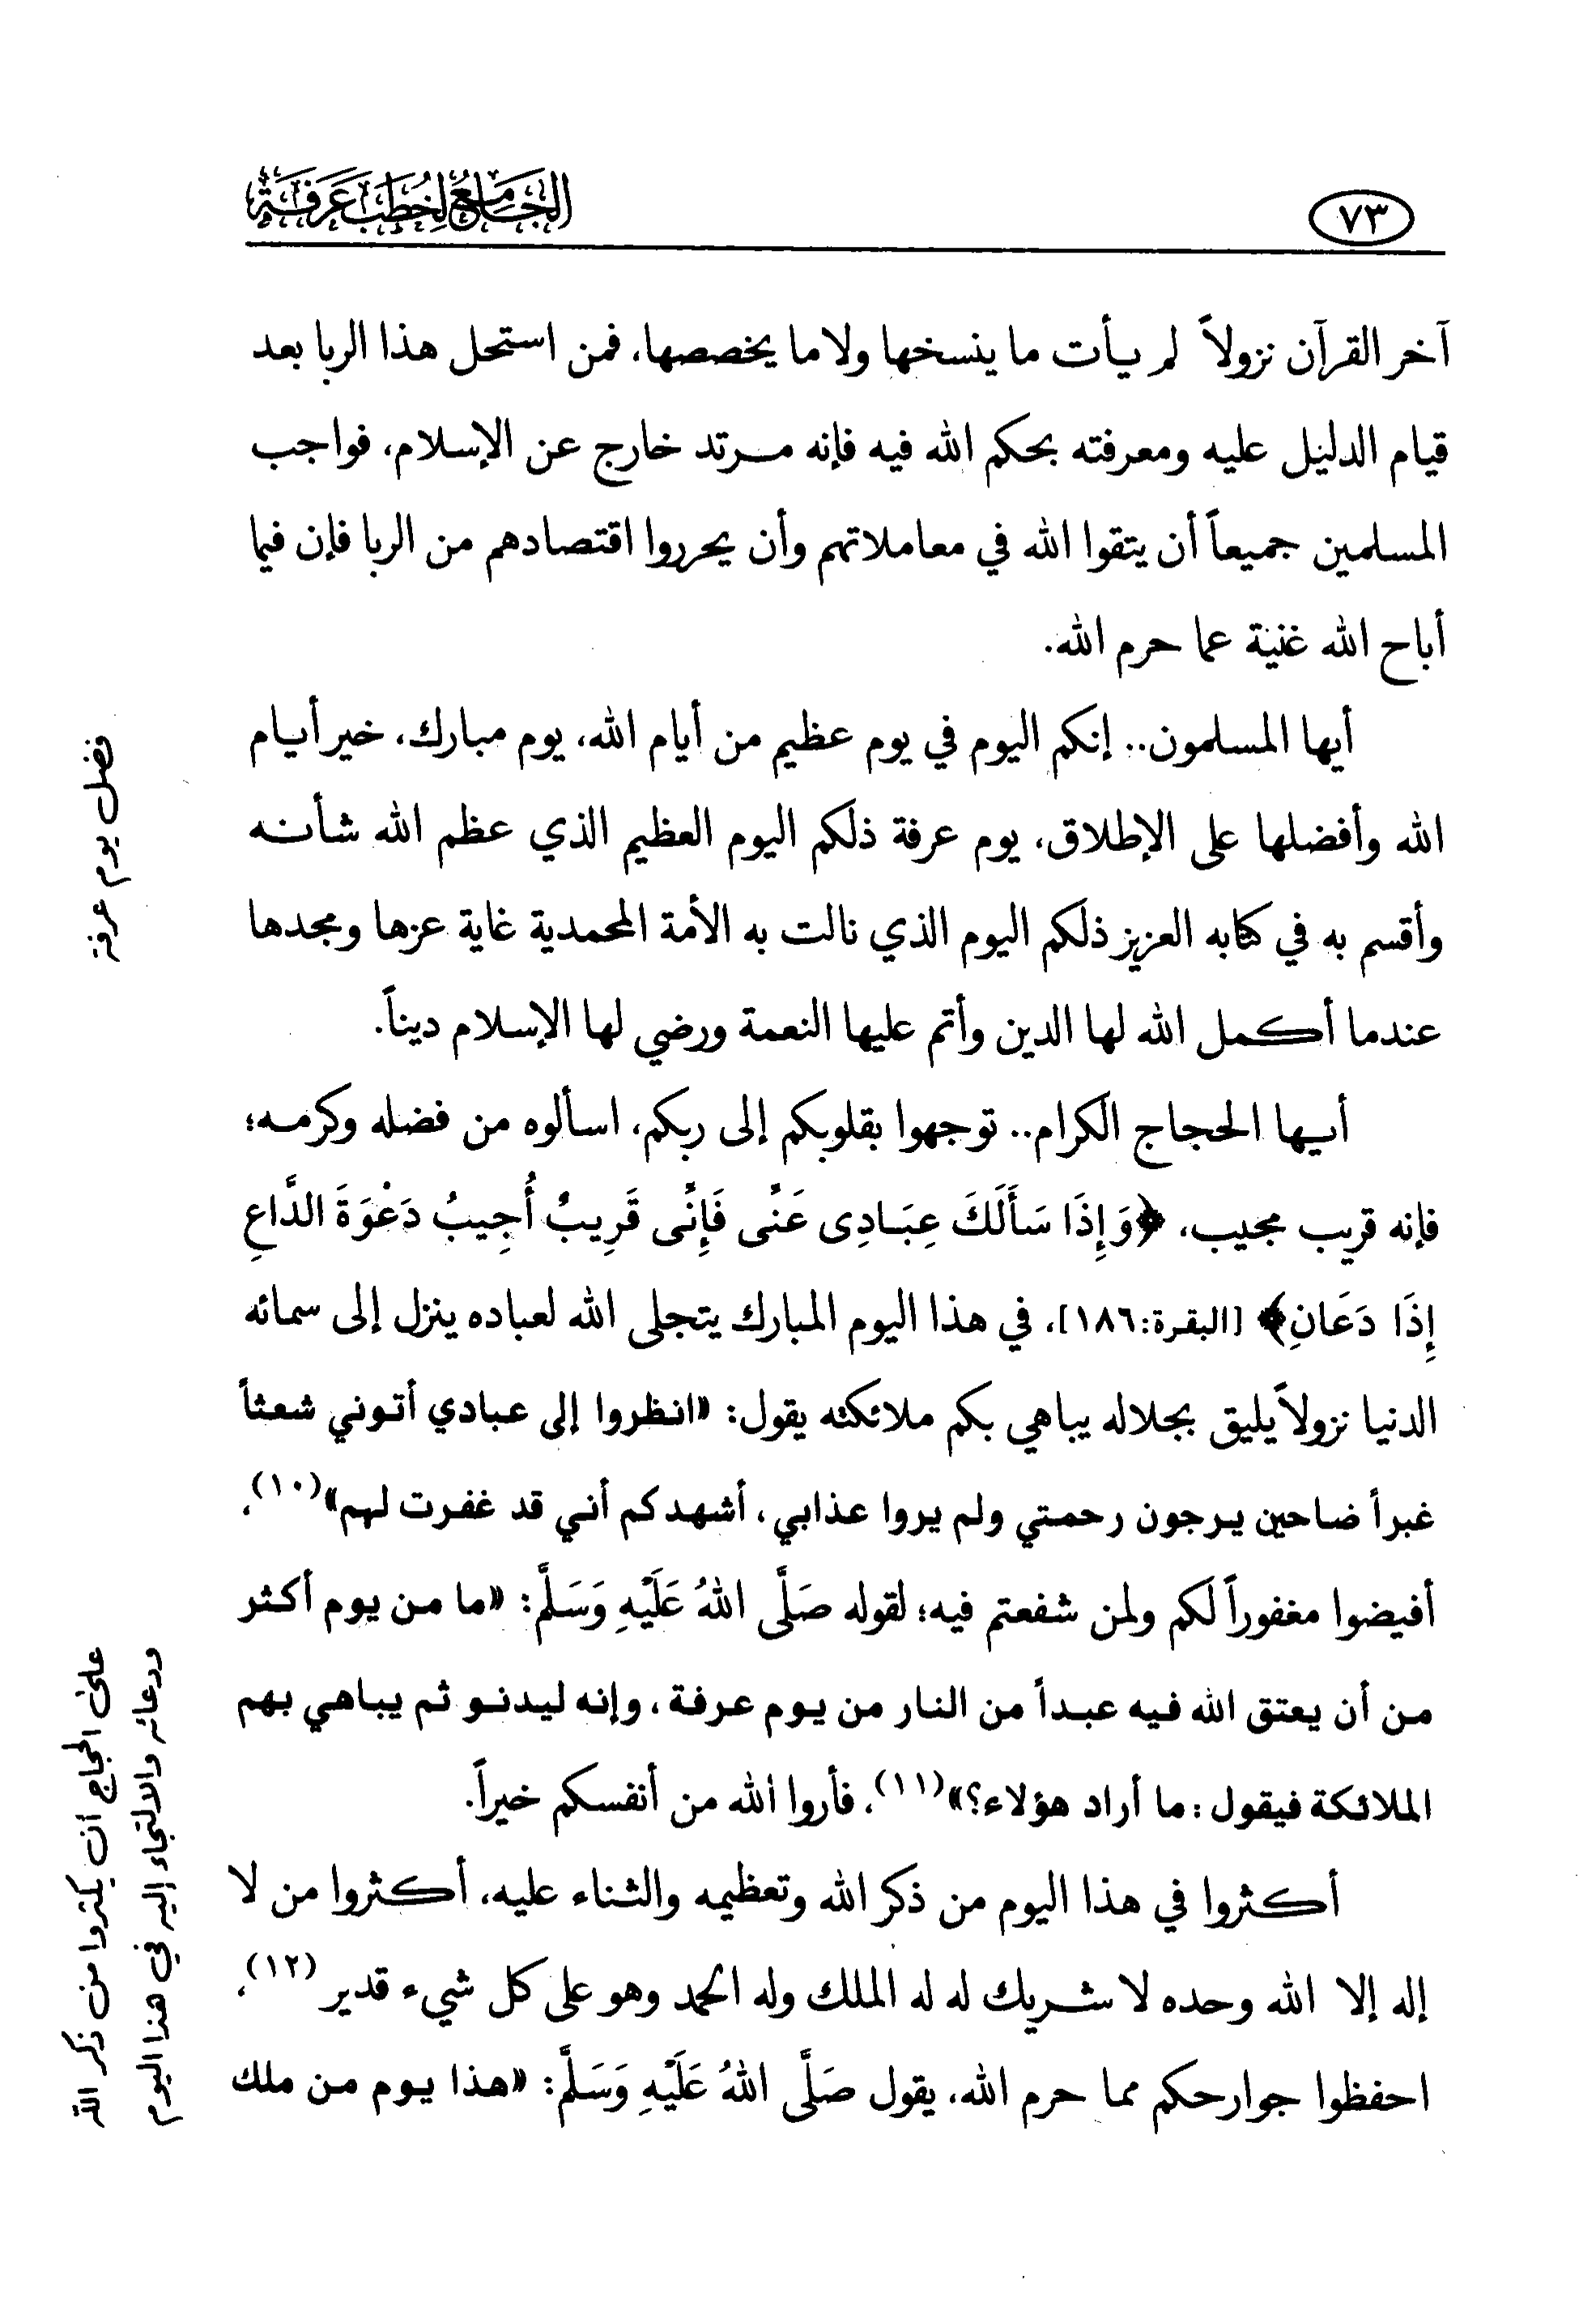 ٧٣
الجامع لخطب عرفة
آخر القرآن نزولاً لم يأت ما ينسخها ولا ما يخصصها، فمن استحل هذا الربا بعد
قيام الدليل عليه ومعرفته بحكم الله فيه فإنه مرتد خارج عن الإسلام، فواجب
المسلمين جميعاً أن يتقوا الله في معاملاتهم وأن يحرروا اقتصادهم من الربا فإن فيما
أباح الله غنية عما حرم الله.
أيها المسلمون.. إنكم اليوم في يوم عظيم من أيام الله، يوم مبارك، خير أيام
الله وأفضلها على الإطلاق، يوم عرفة ذلكم اليوم العظيم الذي عظم الله شأنه
وأقسم به في كتابه العزيز ذلكم اليوم الذي نالت به الأمة المحمدية غاية عزها ومجدها
عندما أكمل الله لها الدين وأتم عليها النعمة ورضي لها الإسلام ديناً.
أيها الحجاج الكرام.. توجهوا بقلوبكم إلى ربكم، اسألوه من فضله وكرمه؛
فإنه قريب مجيب، ﴿وَإِذَا سَأَلَكَ عِبَادِى عَنِّى فَإِنِّى قَرِيبٌ أُجِيبُ دَعْوَةَ الدَّاعِ
إِذَا دَعَانِ﴾ [البقرة:١٨٦]، في هذا اليوم المبارك يتجلى الله لعباده ينزل إلى سمائه
الدنيا نزولاً يليق بجلاله يباهي بكم ملائكته يقول: «انظروا إلى عبادي أتوني شعثاً
غبراً ضاحين يرجون رحمتي ولم يروا عذابي، أشهدكم أني قد غفرت لهم»(١٠)،
أفيضوا مغفوراً لكم ولمن شفعتم فيه؛ لقوله صَلَّى اللهُ عَلَيْهِ وَسَلَّمَ: «ما من يوم أكثر
من أن يعتق الله فيه عبداً من النار من يوم عرفة، وإنه ليدنو ثم يباهي بهم
الملائكة فيقول: ما أراد هؤلاء؟»(١١)، فأروا الله من أنفسكم خيراً.
أكثروا في هذا اليوم من ذكر الله وتعظيمه والثناء عليه، أكثروا من لا
إله إلا الله وحده لا شريك له له الملك وله الحمد وهو على كل شيء قدير (١٢)،
احفظوا جوارحكم مما حرم الله، يقول صَلَّى اللهُ عَلَيْهِ وَسَلَّمَ: «هذا يوم من ملك
فضل يوم عرفة
على الحجاج أن يكثروا من ذكر الله
ودعائه والالتجاء إليه في هذا اليوم